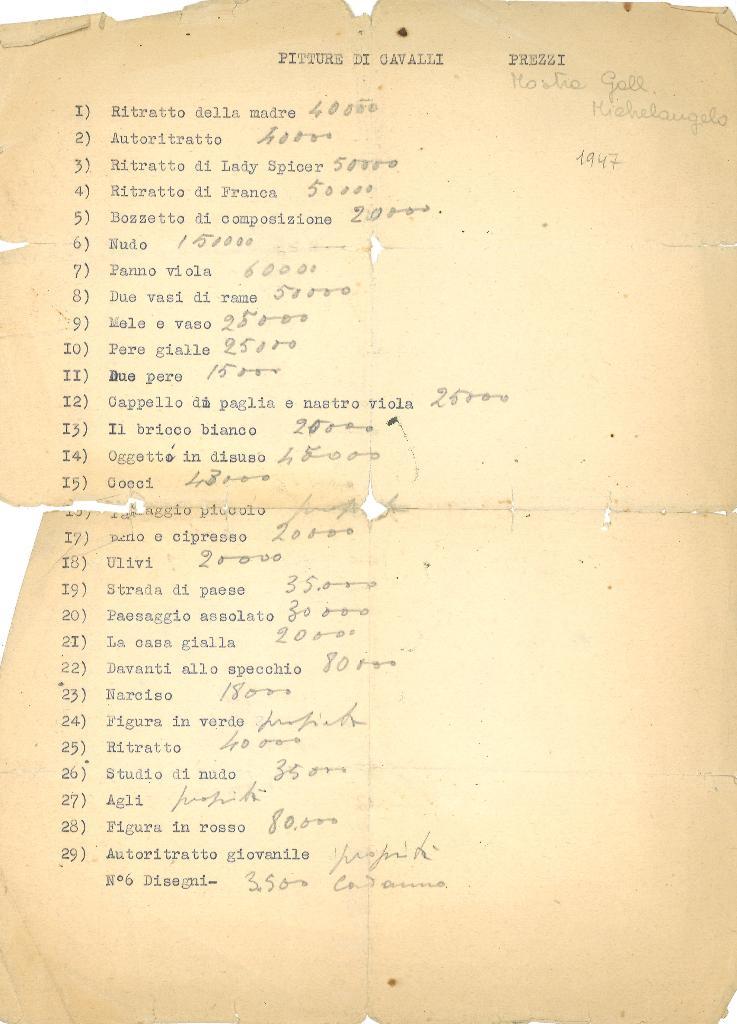 PITTURE DI CAVALLI PREZZI
Mostra Gall.
Michelangelo
1947
I) Ritratto della madre 40000
2) Autoritratto 40000
3) Ritratto di Lady Spicer 50000
4) Ritratto di Franca 50000
5) Bozzetto di composizione 20000
6) Nudo 150000
7) Panno viola 60000
8) Due vasi di rame 50000
9) Mele e vaso 25000
I0) Pere gialle 25000
II) Due pere 15000
I2) Cappello di paglia e nastro viola 25000
I3) Il bricco bianco 20000
I4) Oggetto in disuso 45000
I5) Cocci
piccolo
I7) e cipresso 20000
I8) Ulivi 20000
I9) Strada di paese 35.000
20) Paesaggio assolato 30000
2I) La casa gialla 20000
22) Davanti allo specchio 80000
23) Narciso 18000
24) Figura in verde propietà
25) Ritratto 40000
26) Studio di nudo 35000
27) Agli
28) Figura in rosso 80.000
29) Autoritratto giovanile
N°6 Disegni- 3.500 cadauno